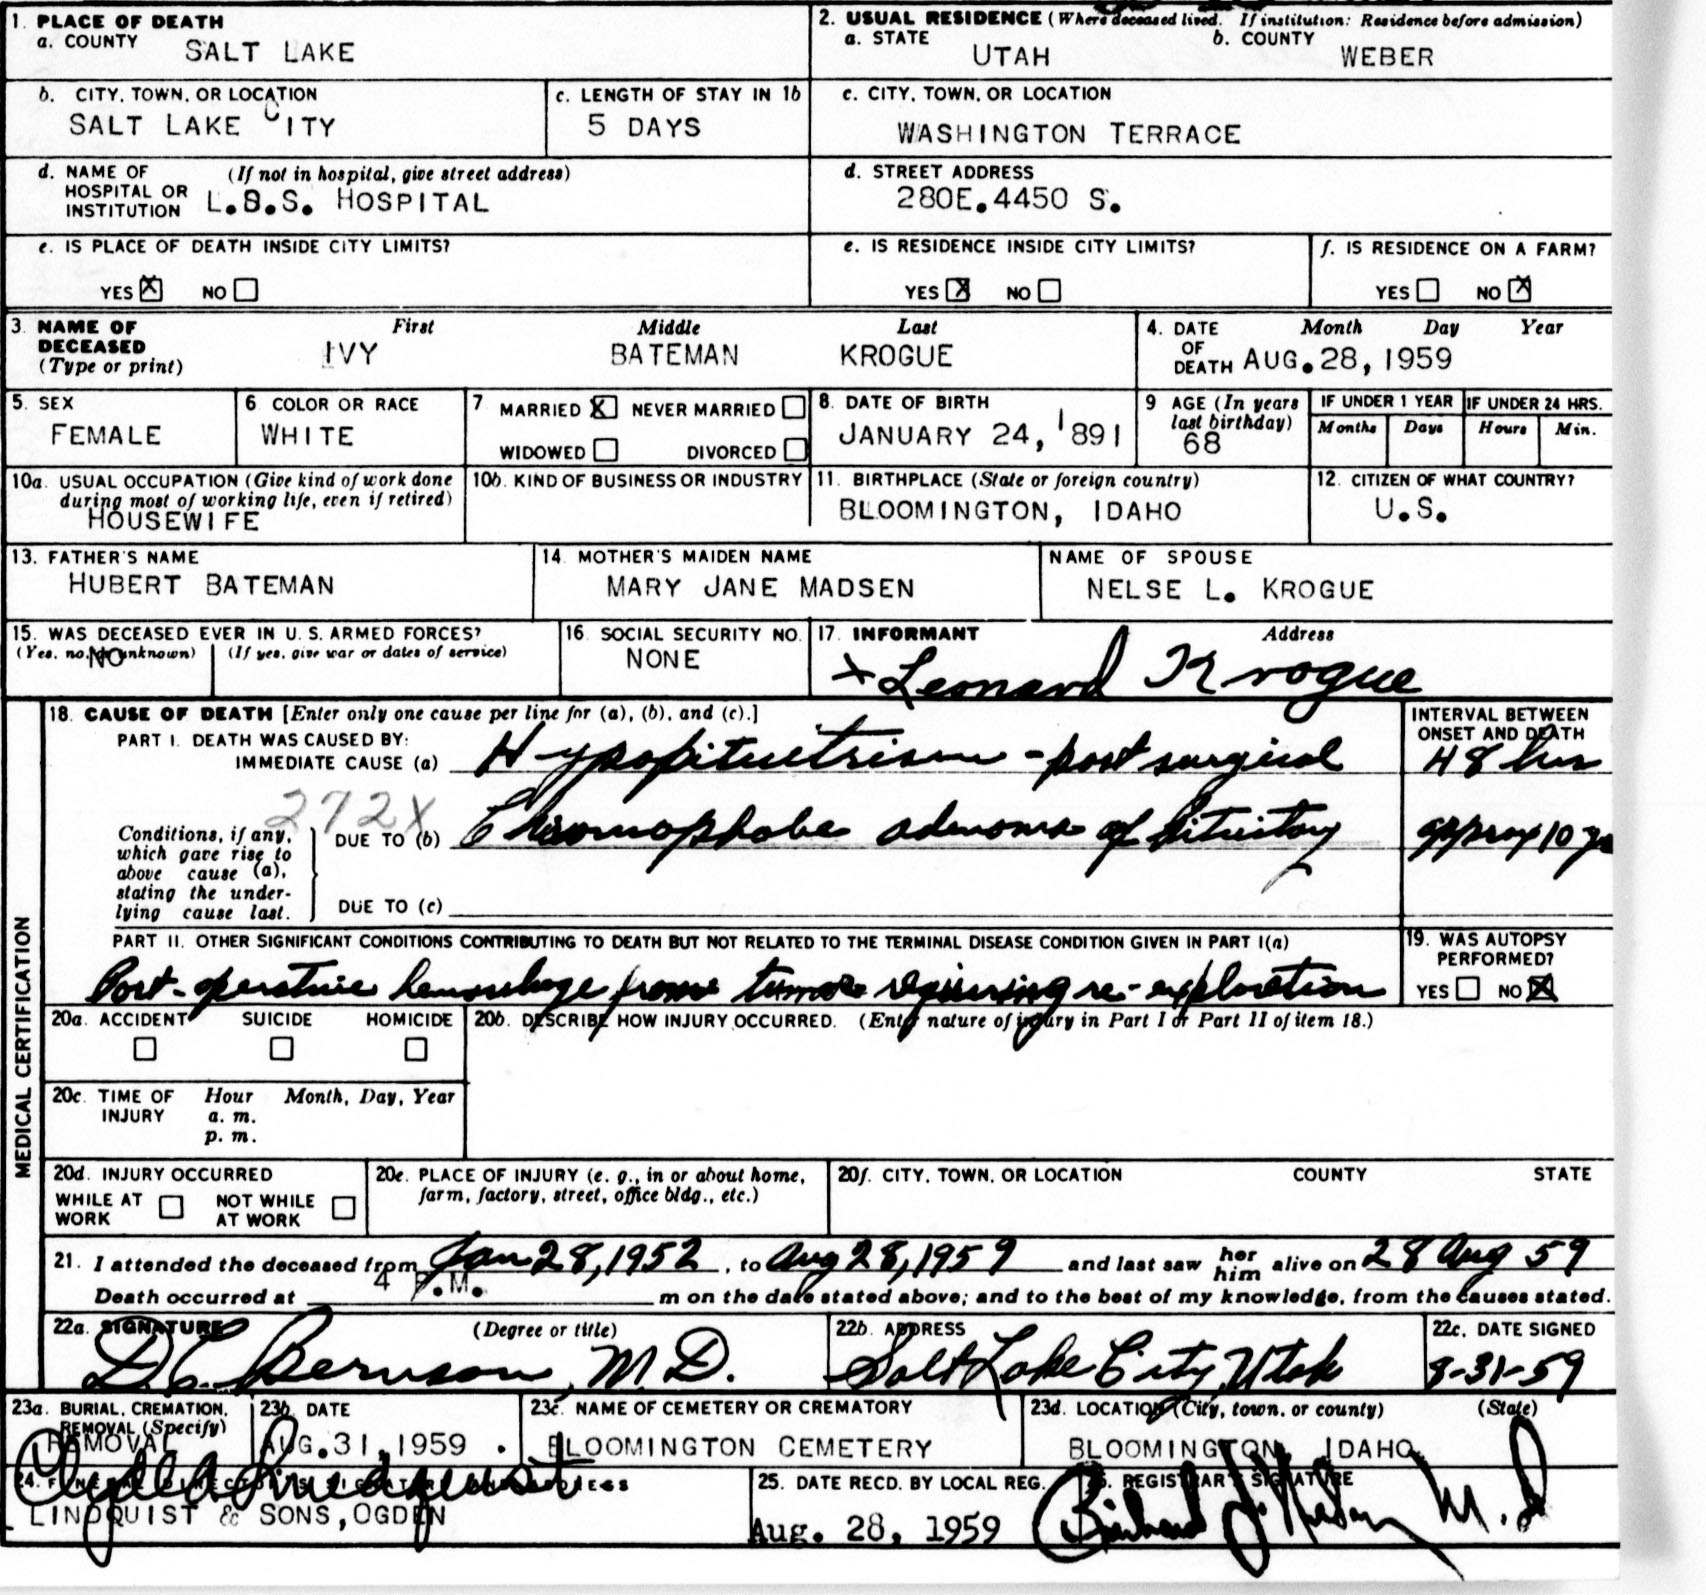 1. PLACE OF DEATH
a. COUNTY SALT LAKE
2. USUAL RESIDENCE (Where deceased lived. If institution: Residence before admission)
a. STATE UTAH b. COUNTY WEBER
b. CITY, TOWN, OR LOCATION SALT LAKE CITY
c. LENGTH OF STAY IN 1b 5 DAYS
c. CITY, TOWN, OR LOCATION WASHINGTON TERRACE
d. NAME OF HOSPITAL OR INSTITUTION (If not in hospital, give street address) L.D.S. HOSPITAL
d. STREET ADDRESS 280E.4450 S.
e. IS PLACE OF DEATH INSIDE CITY LIMITS?
YES X NO
e. IS RESIDENCE INSIDE CITY LIMITS?
YES X NO
f. IS RESIDENCE ON A FARM?
YES NO X
3. NAME OF DECEASED (Type or print) First Middle Last
IVY BATEMAN KROGUE
4. DATE OF DEATH Month Day Year
AUG.28, 1959
5. SEX FEMALE
6. COLOR OR RACE WHITE
7 MARRIED X NEVER MARRIED
WIDOWED DIVORCED
8. DATE OF BIRTH JANUARY 24, 1891
9 AGE (In years last birthday) 68
IF UNDER 1 YEAR Months Days
IF UNDER 24 HRS. Hours Min.
10a. USUAL OCCUPATION (Give kind of work done during most of working life, even if retired)
HOUSEWIFE
10b. KIND OF BUSINESS OR INDUSTRY
11. BIRTHPLACE (State or foreign country)
BLOOMINGTON, IDAHO
12. CITIZEN OF WHAT COUNTRY?
U.S.
13. FATHER'S NAME
HUBERT BATEMAN
14. MOTHER'S MAIDEN NAME
MARY JANE MADSEN
NAME OF SPOUSE
NELSE L. KROGUE
15. WAS DECEASED EVER IN U.S. ARMED FORCES?
(Yes, no, or unknown) NO (If yes, give war or dates of service)
16. SOCIAL SECURITY NO.
NONE
17. INFORMANT Address
x Leonard Krogue
MEDICAL CERTIFICATION
18. CAUSE OF DEATH [Enter only one cause per line for (a), (b), and (c).]
INTERVAL BETWEEN ONSET AND DEATH
PART I. DEATH WAS CAUSED BY:
IMMEDIATE CAUSE (a) Hypopituitrism - post surgical 48 hrs
272X
Conditions, if any, which gave rise to above cause (a), stating the underlying cause last.
DUE TO (b) Chromophobe adenoma of pituitary approx 10 yr
DUE TO (c)
PART II. OTHER SIGNIFICANT CONDITIONS CONTRIBUTING TO DEATH BUT NOT RELATED TO THE TERMINAL DISEASE CONDITION GIVEN IN PART I(a)
Post-operative hemorrhage from tumor requiring re-exploration
19. WAS AUTOPSY PERFORMED?
YES NO X
20a. ACCIDENT SUICIDE HOMICIDE
20b. DESCRIBE HOW INJURY OCCURRED. (Enter nature of injury in Part I or Part II of item 18.)
20c. TIME OF INJURY Hour Month, Day, Year
a. m.
p. m.
20d. INJURY OCCURRED
WHILE AT WORK NOT WHILE AT WORK
20e. PLACE OF INJURY (e. g., in or about home, farm, factory, street, office bldg., etc.)
20f. CITY, TOWN, OR LOCATION COUNTY STATE
21. I attended the deceased from Jan 28, 1952, to Aug 28, 1959 and last saw her him alive on 28 Aug 59
Death occurred at 4 P.M. m on the date stated above; and to the best of my knowledge, from the causes stated.
22a. SIGNATURE (Degree or title)
D.C. Bernson, M.D.
22b. ADDRESS
Salt Lake City, Utah
22c. DATE SIGNED
8-31-59
23a. BURIAL, CREMATION, REMOVAL (Specify)
REMOVAL
23b. DATE
AUG.31,1959 .
23c. NAME OF CEMETERY OR CREMATORY
BLOOMINGTON CEMETERY
23d. LOCATION (City, town, or county) (State)
BLOOMINGTON, IDAHO
24. FUNERAL DIRECTOR'S SIGNATURE ADDRESS
LINDQUIST & SONS, OGDEN
25. DATE RECD. BY LOCAL REG.
Aug. 28, 1959
26. REGISTRAR'S SIGNATURE
M.D